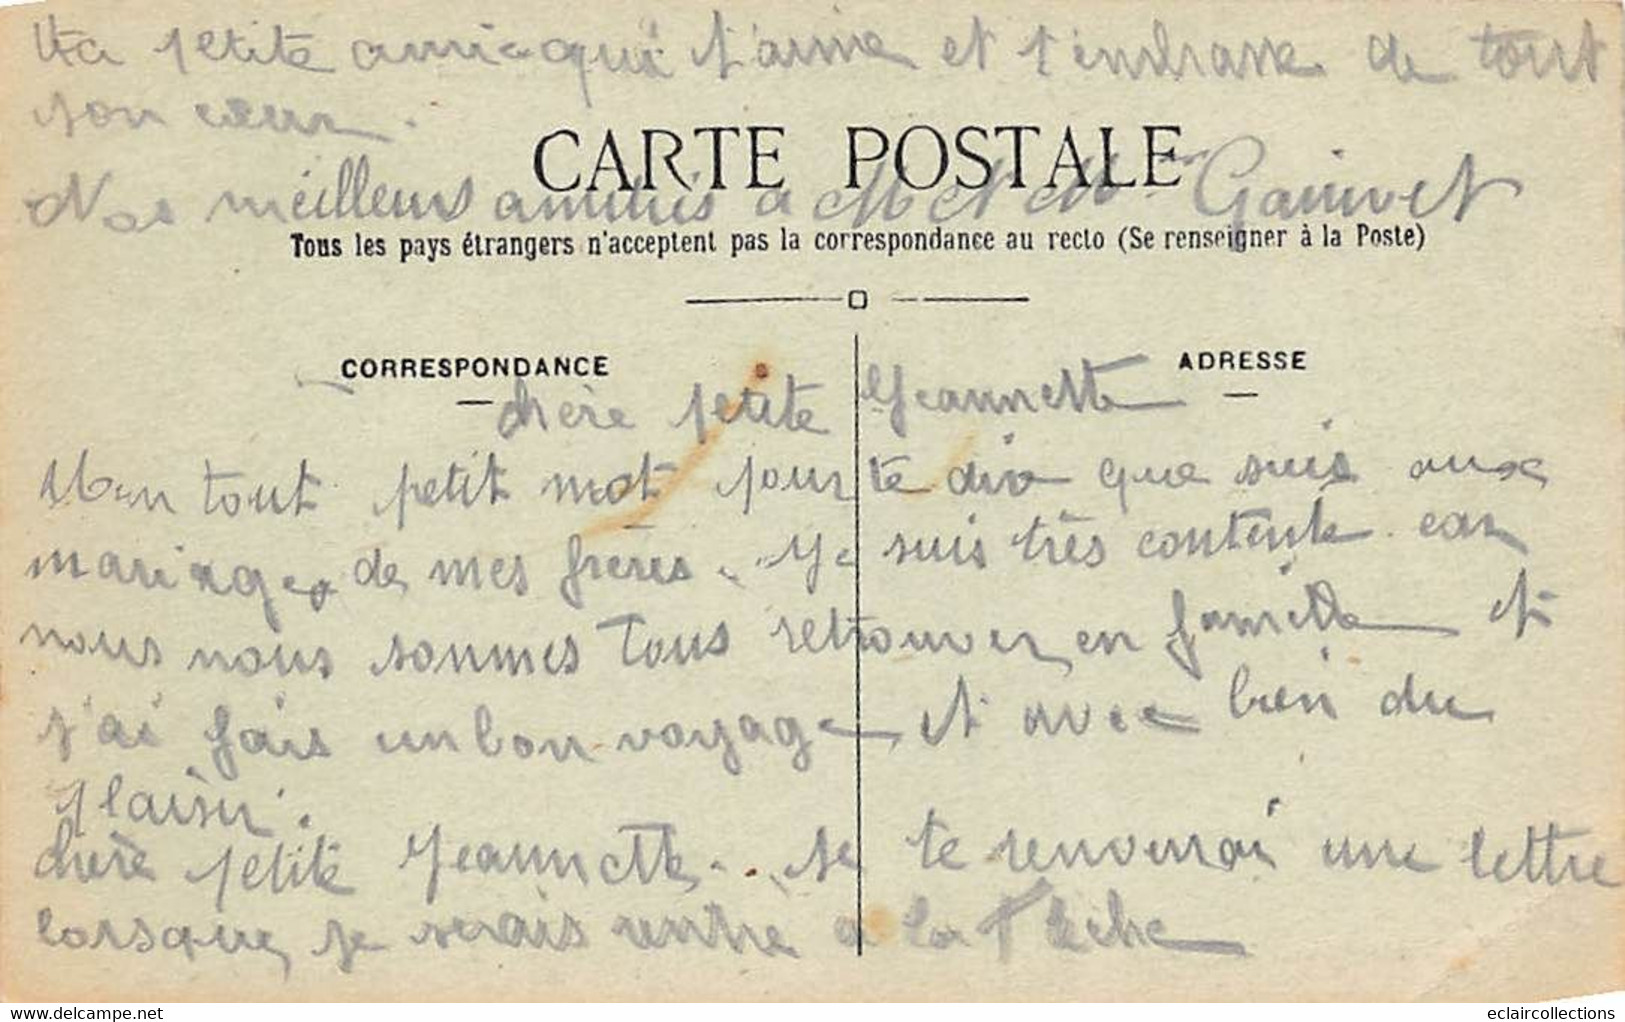 Ta petite amie qui t'aime et t'embrasse de tout
son cœur.
CARTE POSTALE
Nos meilleurs amitiés a M et Mme
Tous les pays étrangers n'acceptent pas la correspondance au recto (Se renseigner à la Poste)
CORRESPONDANCE
ADRESSE
chère petite Jeannette
Mon tout petit mot pour te dire que suis aux
mariage de mes frères. Je suis très contente car
nous nous sommes tous retrouver en famille et
j'ai fais un bon voyage et avec bien du
plaisir.
chère petite Jeannette. Je te renverrai une lettre
lorsque je serais rentré a la Flèche
www.delcampe.net
eclaircollections